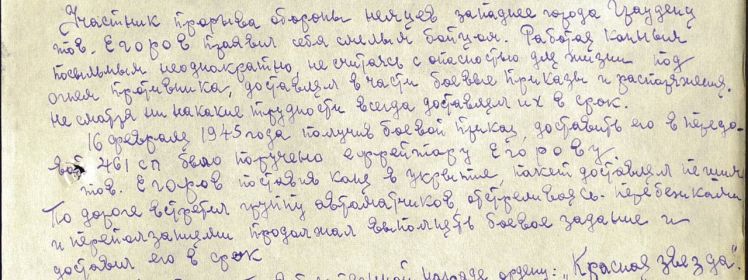 Участник прорыва обороны немцев западнее города Грауденц
тов. Егоров проявил себя смелым бойцом. Работая конным
посыльным неоднократно, не считаясь с опасностью для жизни под
огнем противника, доставлял в части боевые приказы и распоряжения.
Не смотря ни на какие трудности всегда доставлял их в срок.
16 февраля 1945 года получив боевой приказ, доставить его в передо-
вой 461 сп было поручено ефрейтору Егорову.
тов. Егоров поставив коня в укрытие, пакет доставлял пешим
По дороге встретил группу автоматчиков, отстреливаясь. перебежками
и переползаниями продолжал выполнять боевое задание и
доставил его в срок
награде ордену: "Красная звезда".